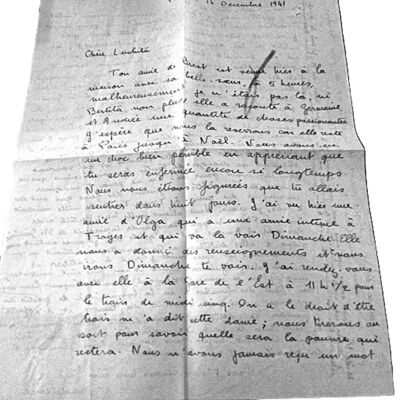 16 Décembre 1941
Chère Luchita
Ton amie de Brest est venue hier à la
maison avec sa belle-sœur à 5 heures,
malheureusement je n'étais pas là, ni
Bertita non plus, elle a raconté à Germaine
et Andrée une quantité de choses passionantes
J'espère que nous la reverrons car elle reste
à Paris jusqu'à Noël. Nous avons eu
un choc bien pénible en apprenant que
tu serais enfermée encore si longtemps
Nous nous étions figurées que tu allais
rentrer dans huit jours. J'ai vu hier une
amie d'Olga qui a une amie internée à
Troyes et qui va la voir Dimanche. Elle
nous a donné des renseignements et nous
irons Dimanche te voir. J'ai rendez-vous
avec elle à la Gare de l'Est à 11h 1/2 pour
le train de midi cinq. On a le droit d'être
trois m'a dit cette dame; nous tirerons au
sort pour savoir quelle sera la pauvre qui
restera. Nous n'avons jamais reçu un mot